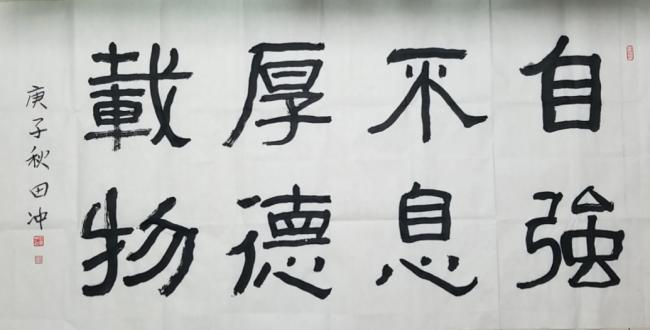 自強
不息
厚德
載物
庚子秋田冲